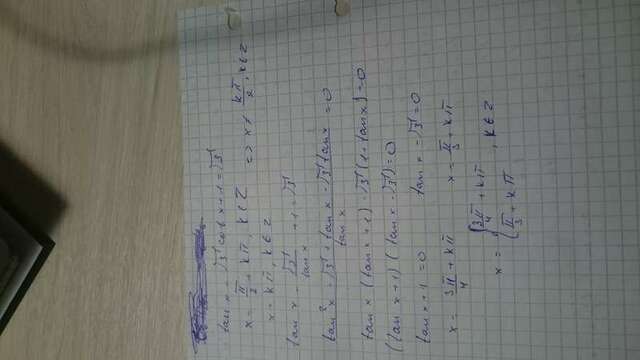 tan x - √3 cot x + 1 = √3
x = π/2 + kπ, k ∈ Z
x = kπ, k ∈ Z ⇔ x ≠ kπ/2, k ∈ Z
tan x - √3/tan x + 1 = √3
tan²x - √3 + tan x - √3 tan x / tan x = 0
tan x (tan x + 1) - √3 (1 + tan x) = 0
(tan x + 1) (tan x - √3) = 0
tan x + 1 = 0 tan x - √3 = 0
x = 3π/4 + kπ x = π/3 + kπ
x = { 3π/4 + kπ
π/3 + kπ , k ∈ Z